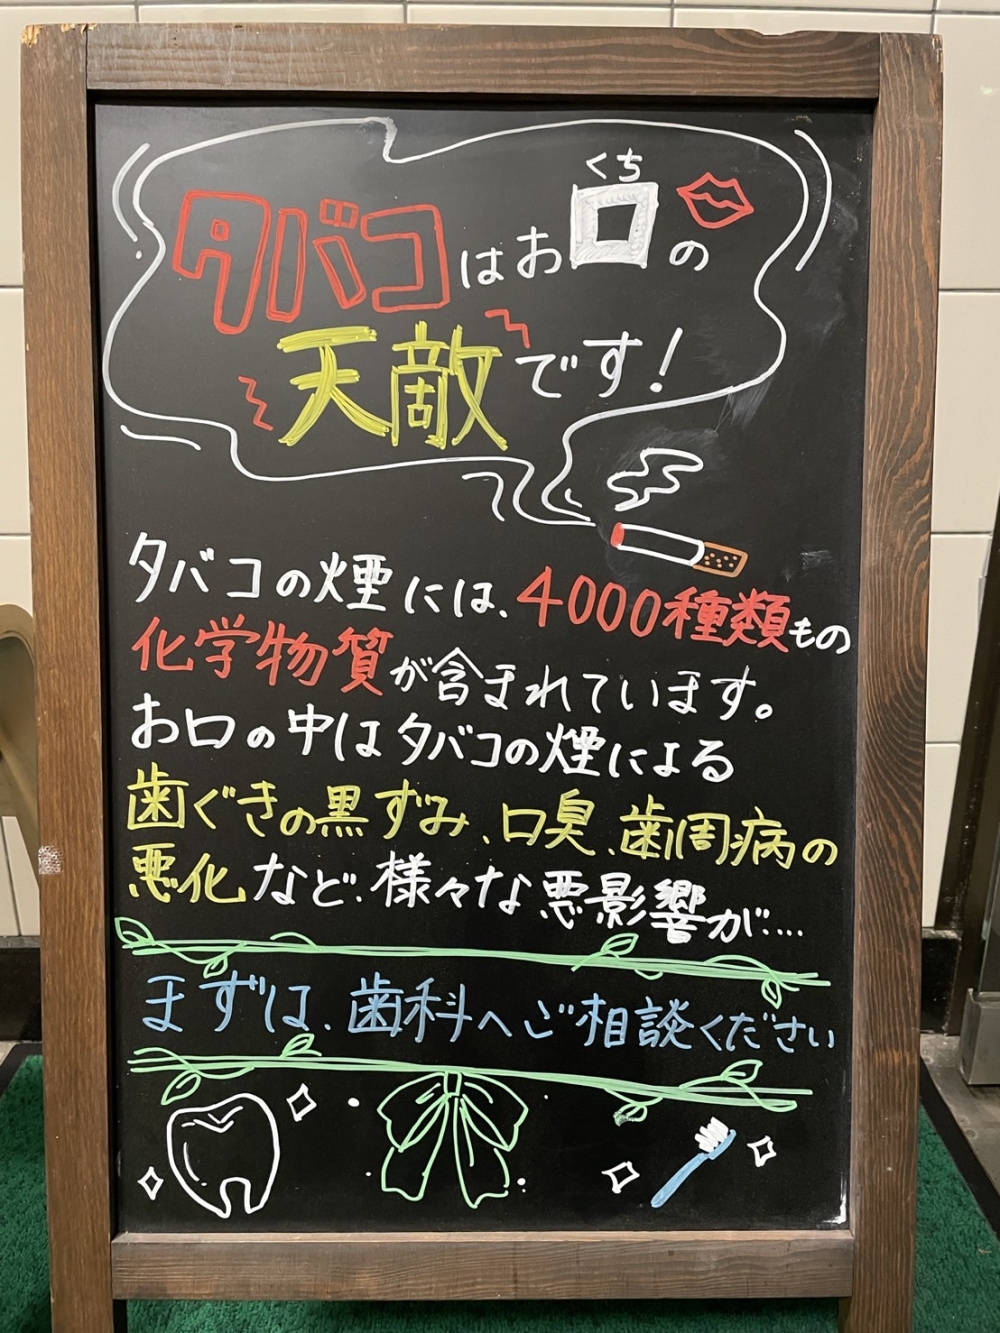 くち
タバコはお口の
天敵です!
タバコの煙には、4000種類もの
化学物質が含まれています。
お口の中はタバコの煙による
歯ぐきの黒ずみ、口臭、歯周病の
悪化など、様々な悪影響が…
まずは、歯科へご相談ください